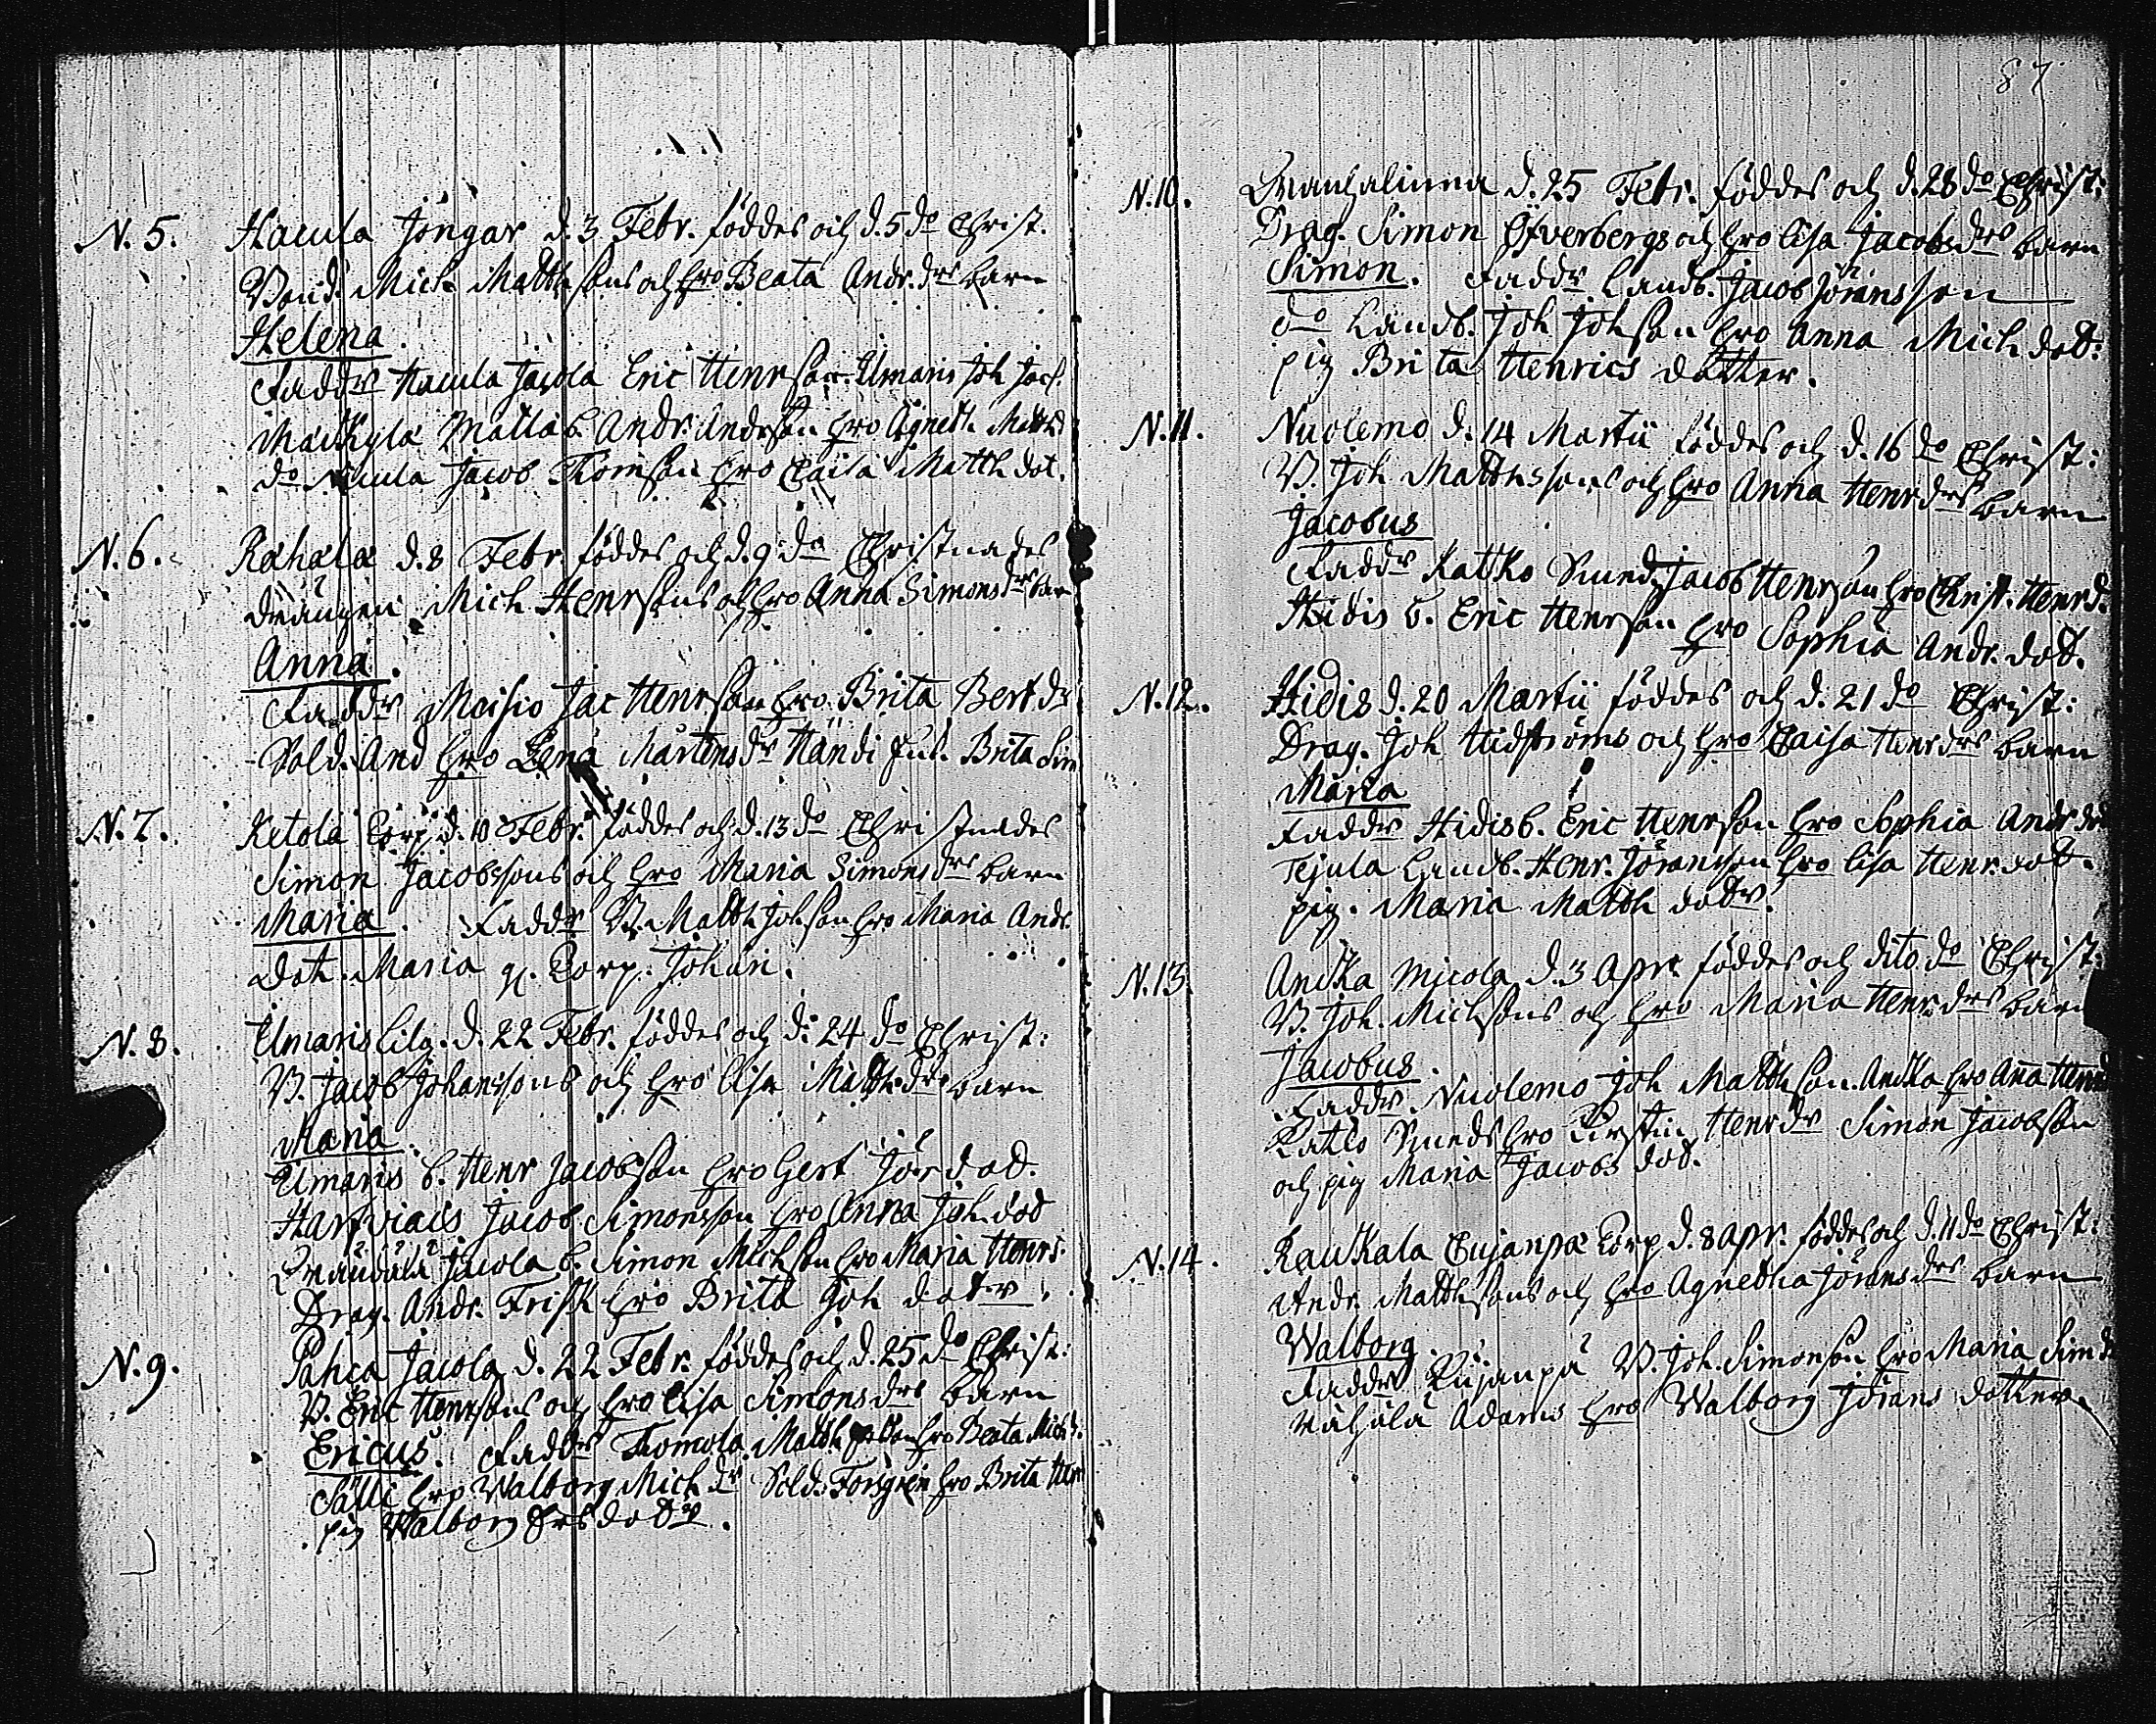 N. 5. Hacula Jöngar d. 3 Febr. föddes och d. 5 do Christ.
Bond. Mich Matthsons och hro Beata Andr. drs barn
Helena.
Faddr Hacula Jacola Eric Henrson. Umaris Joh Jacs.
Matkylä Mattas. Andr Andrson hro Agneth Matthd
do Jacob Thomson hro Caisa Matth dot.
N. 6. Rahala d. 8 Febr. föddes och d. 9 do Christnades
drängen Mich Henrsons och hro Anna Simons drs bar
Anna.
Faddr Moisio Jac Henrson hro Brita Bert. dr
Sold. And hro Lena Mårtens dr Händi hus. Brita Sim
N. 7. Ketola Torp. d. 10 Febr. föddes och d. 13 do Christnades
Simon Jacobssons och hro Maria Simons drs barn
Maria. Faddr B. Matth Johson hro Maria Andr.
dot. Maria q. Torp. Johan.
N. 8. Umaris Lilg. d. 22 Febr. föddes och d. 24 do Christ:
B. Jacob Johanssons och hro Lisa Matth drs barn
Maria.
Umaris b. Henr Jacobsson hro Gert Jör dot.
Jacob Simonsson hro Anna Joh. dot
Jacola b. Simon Michson hro Maria Henrs.
Drag. Andr. Frisk hro Brita Joh dotr.
N. 9. Pahca Jacola d. 22 Febr. föddes och d. 25 do Christ:
B. Eric Henrsons och hro Lisa Simons drs barn
Ericus. Faddr Thomola Matth hro Beata Mich d.
Sälli hro Walborg Mich dr Sold. Forsgren hro Brita Hen
pig Walborg Ers dotr.
87
N. 10. d. 25 Febr. föddes och d. 28 do Christ:
Drag. Simon Öfverbergs och hro Lisa Jacobs drs barn
Simon. Faddr Landb. Jacob Jöransson
do Landb. Joh Johson hro Anna Mich dot:
pig Brita Henrics dotter.
N. 11. Nuolemo d. 14 Martii föddes och d. 16 do Christ:
B. Joh Matthssons och hro Anna Henr drs barn
Jacobus
Faddr Katko Smeds Jacob Henrson hro Christ. Henr d.
Hidis b. Eric Henrson hro Sophia Andr. dot.
N. 12. Hidis d. 20 Martii föddes och d. 21 do Christ:
Drag. Joh Hidströms och hro Caisa Henr drs barn
Maria
Faddr Hidis b. Eric Henrson hro Sophia Andr dr
Tejula Landb. Henr. Jöransson hro Lisa Henr. dot.
pig. Maria Matth dotr.
N. 13. Andka Micola d. 3 Apr. föddes och dito do Christ:
B. Joh. Michsons och hro Maria Henr drs barn
Jacobus.
Faddr. Nuolemo Joh Matthson. Andka hro Anna Henrd
Katko Smeds hro Kirstin Henr dr Simon Jacobsson
och pig Maria Jacobs dot.
N. 14. Raukala Cujanpä Torp d. 8 Apr. föddes och d. 11 do Christ:
Andr. Matthsons och hro Agnetha Jörans drs barn
Walborg.
Faddr Kujanpä B. Joh. Simonson hro Maria Sim d
Adams hro Walborg Jörans dotter.